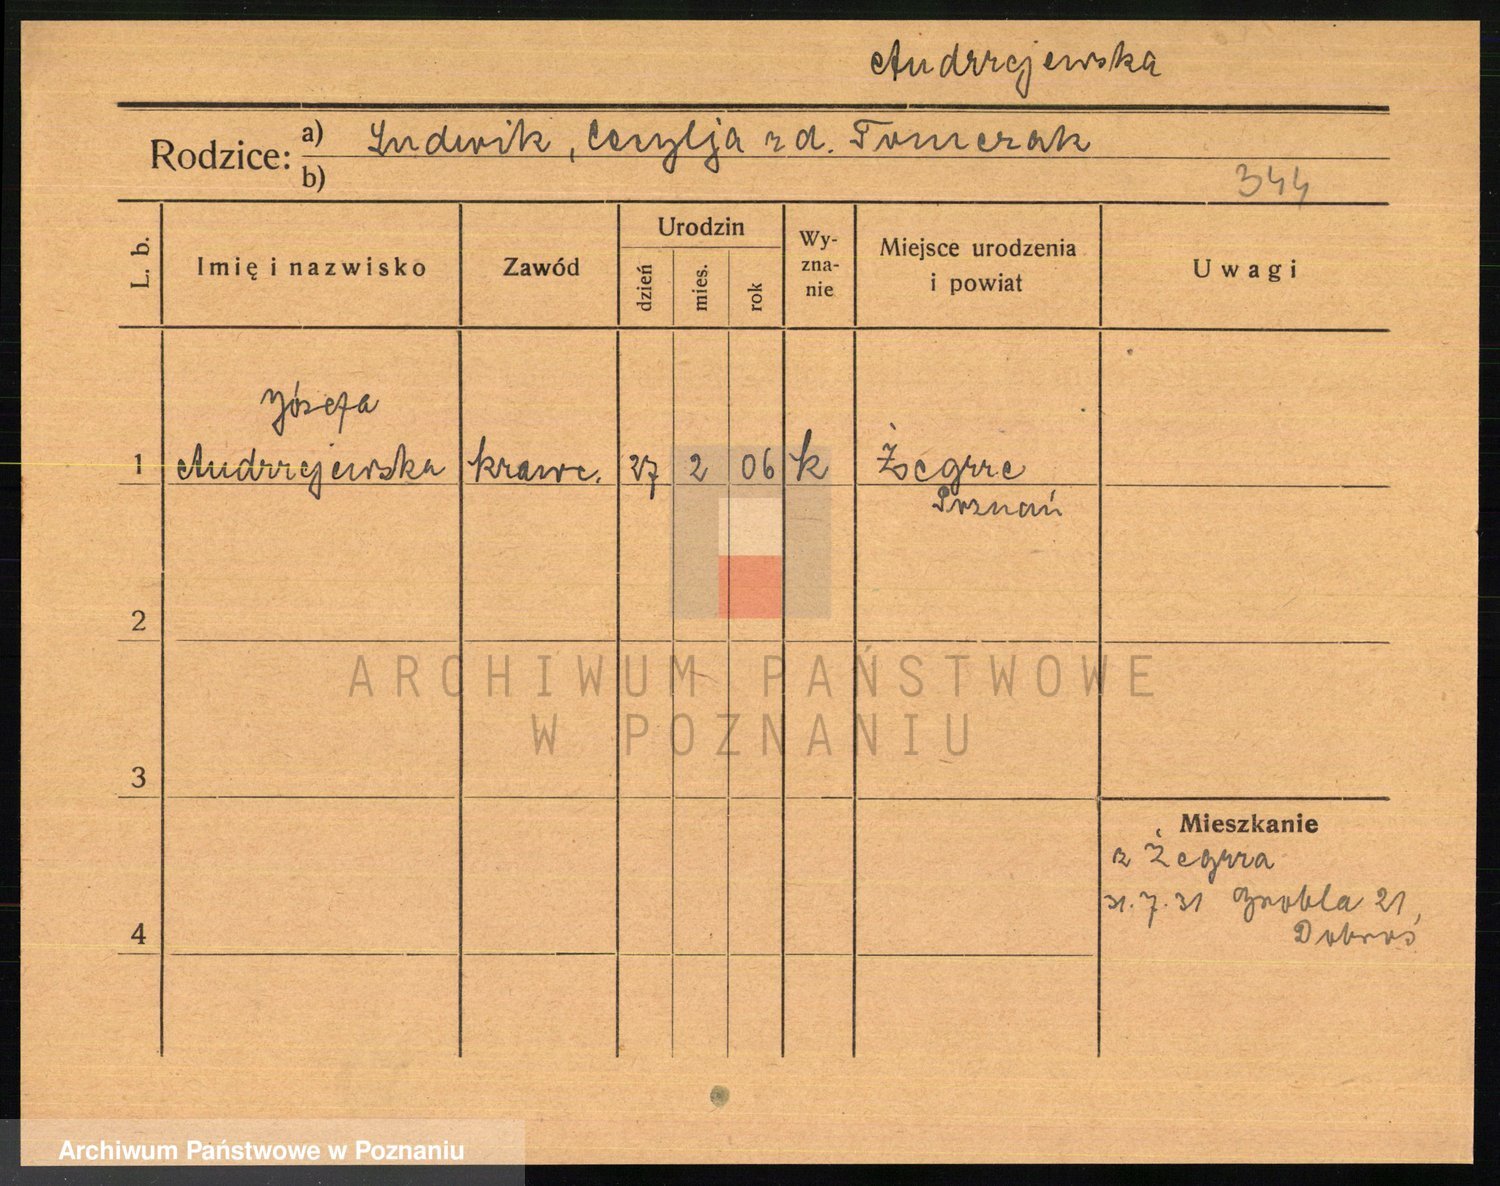 Andrzejewska
Rodzice: a) Ludwik, Cecylja zd. Tomczak
b)
344
L. b.
Imię i nazwisko
Zawód
Urodzin
dzień
mies.
rok
Wy-
zna-
nie
Miejsce urodzenia
i powiat
Uwagi
Józefa
1 Andrzejewska krawc. 27 2 06 k Żegrze
Poznań
2
3
4
Mieszkanie
z Żegrza
31.7.31 Grobla 21,
ARCHIWUM PAŃSTWOWE
W POZNANIU
Archiwum Państwowe w Poznaniu